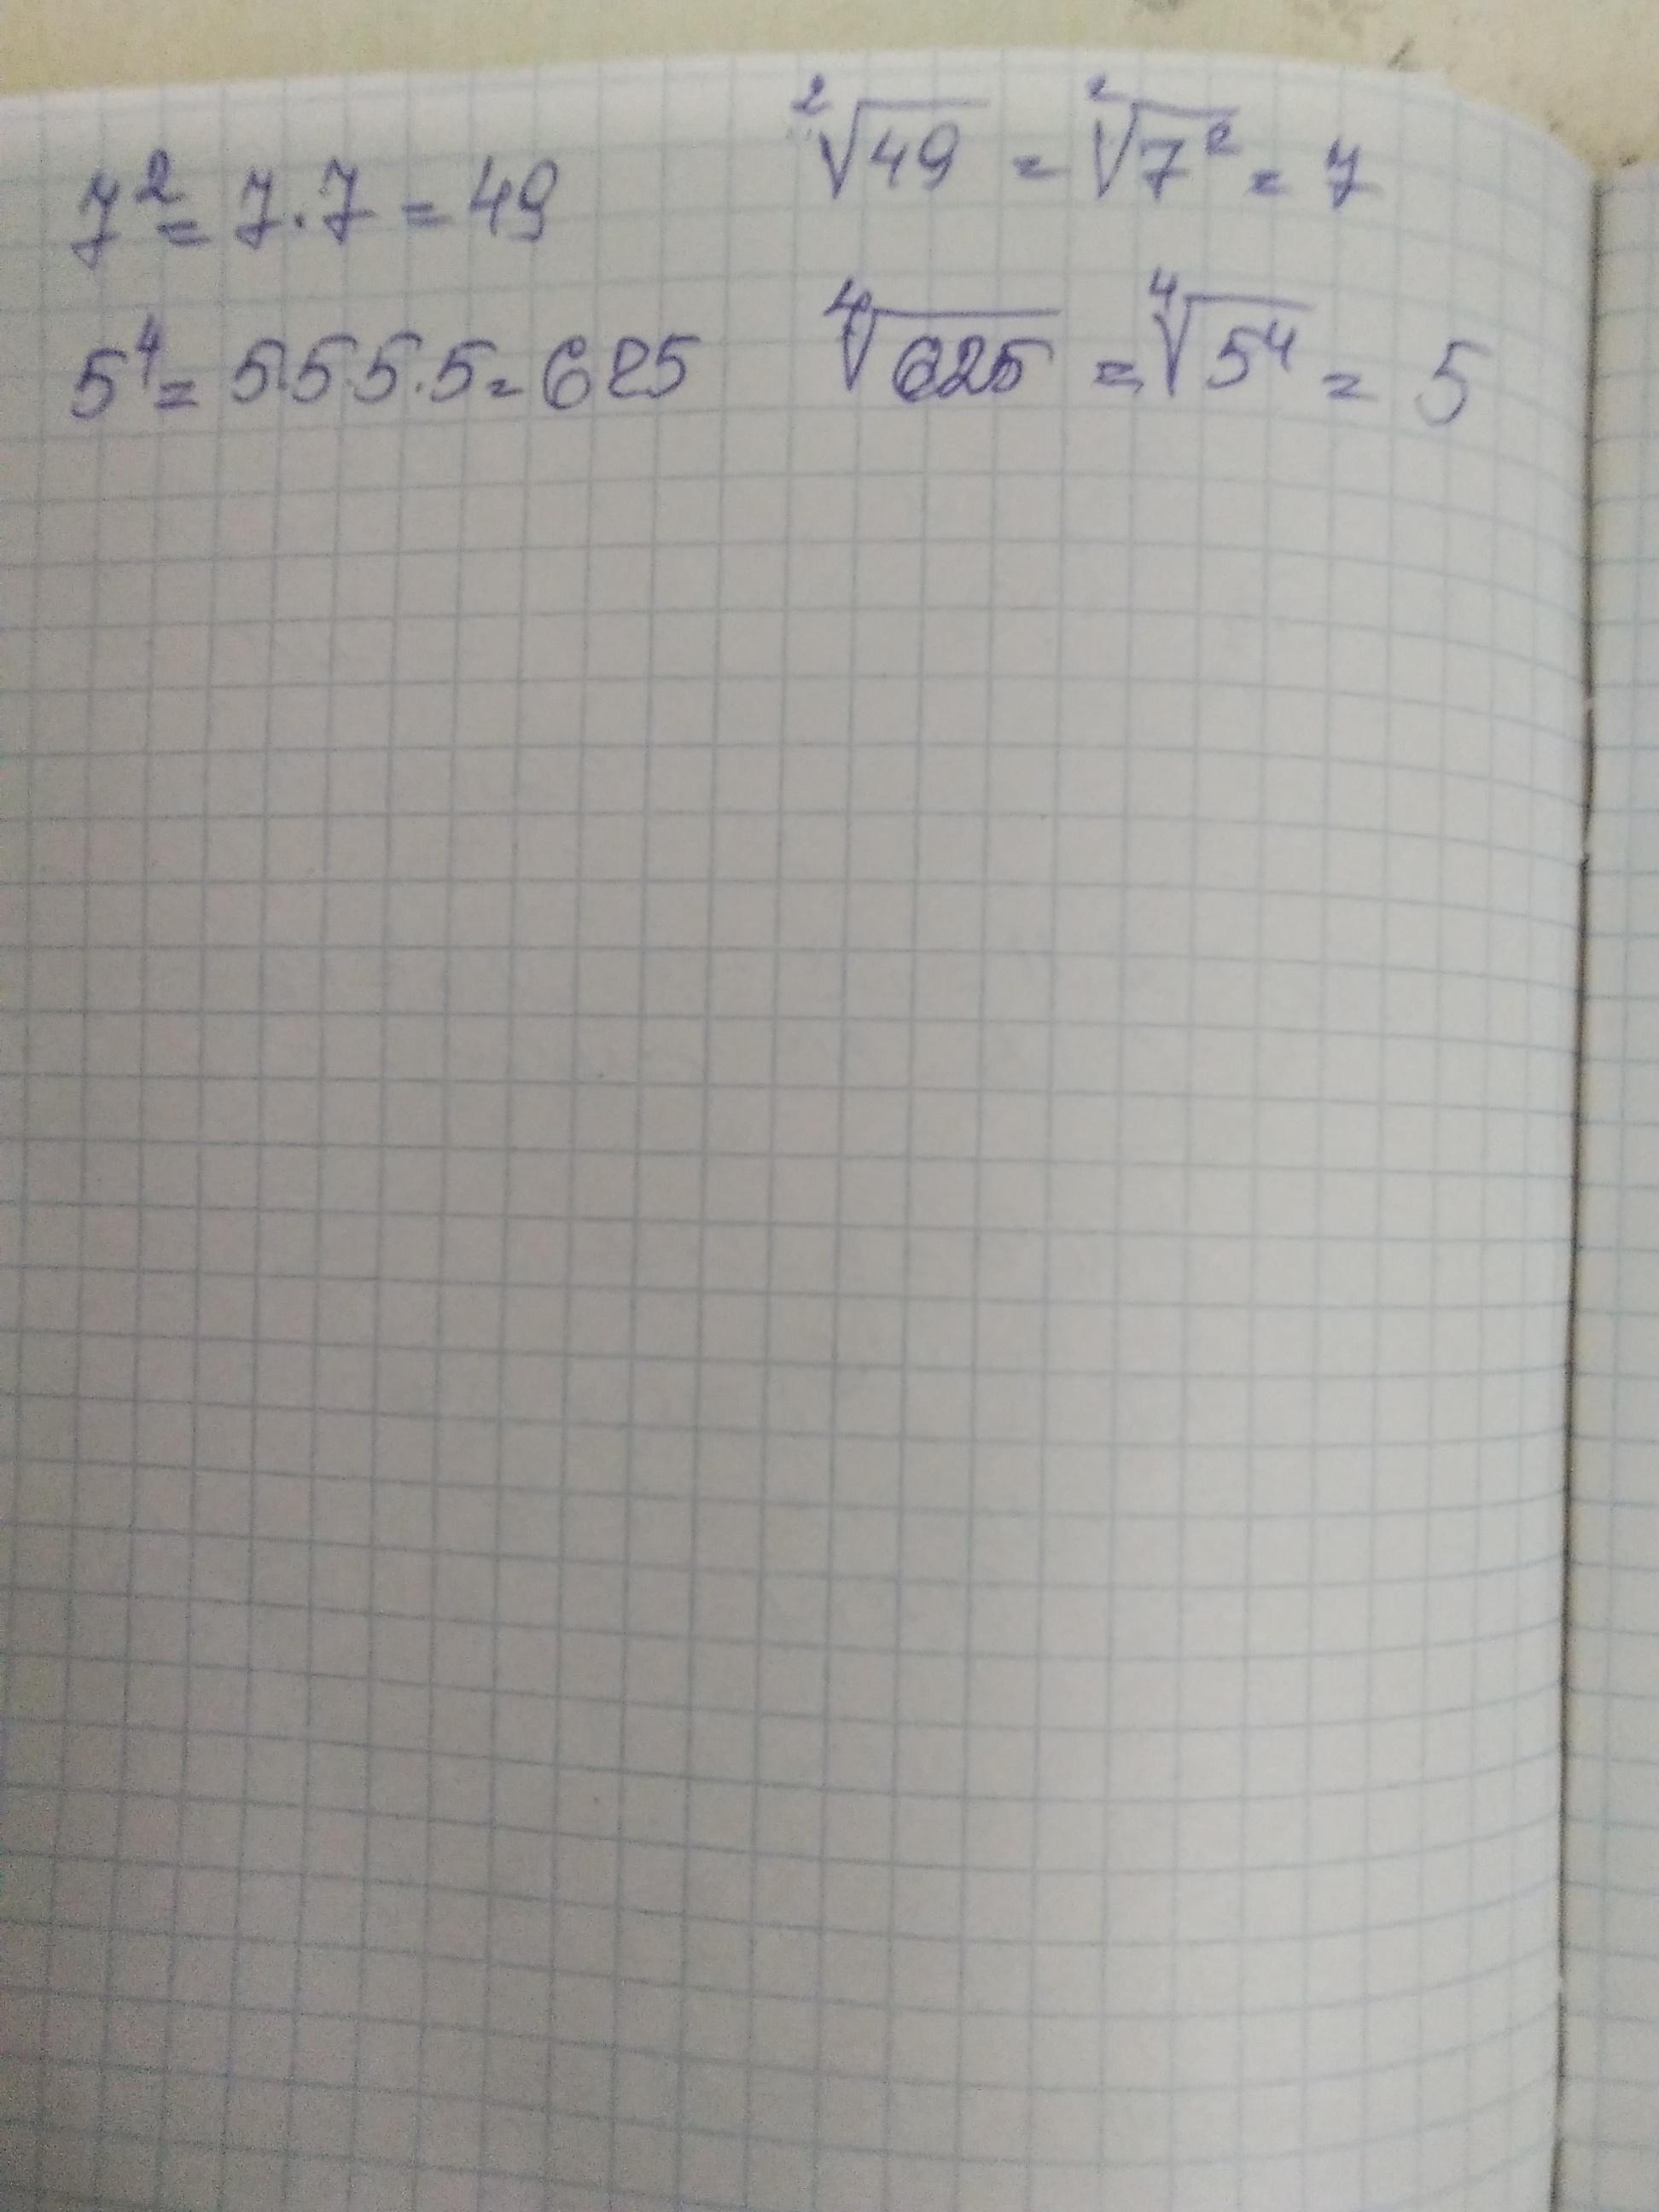 7² = 7·7 = 49 ²√49 = ²√7² = 7
5⁴ = 5·5·5·5 = 625 ⁴√625 = ⁴√5⁴ = 5